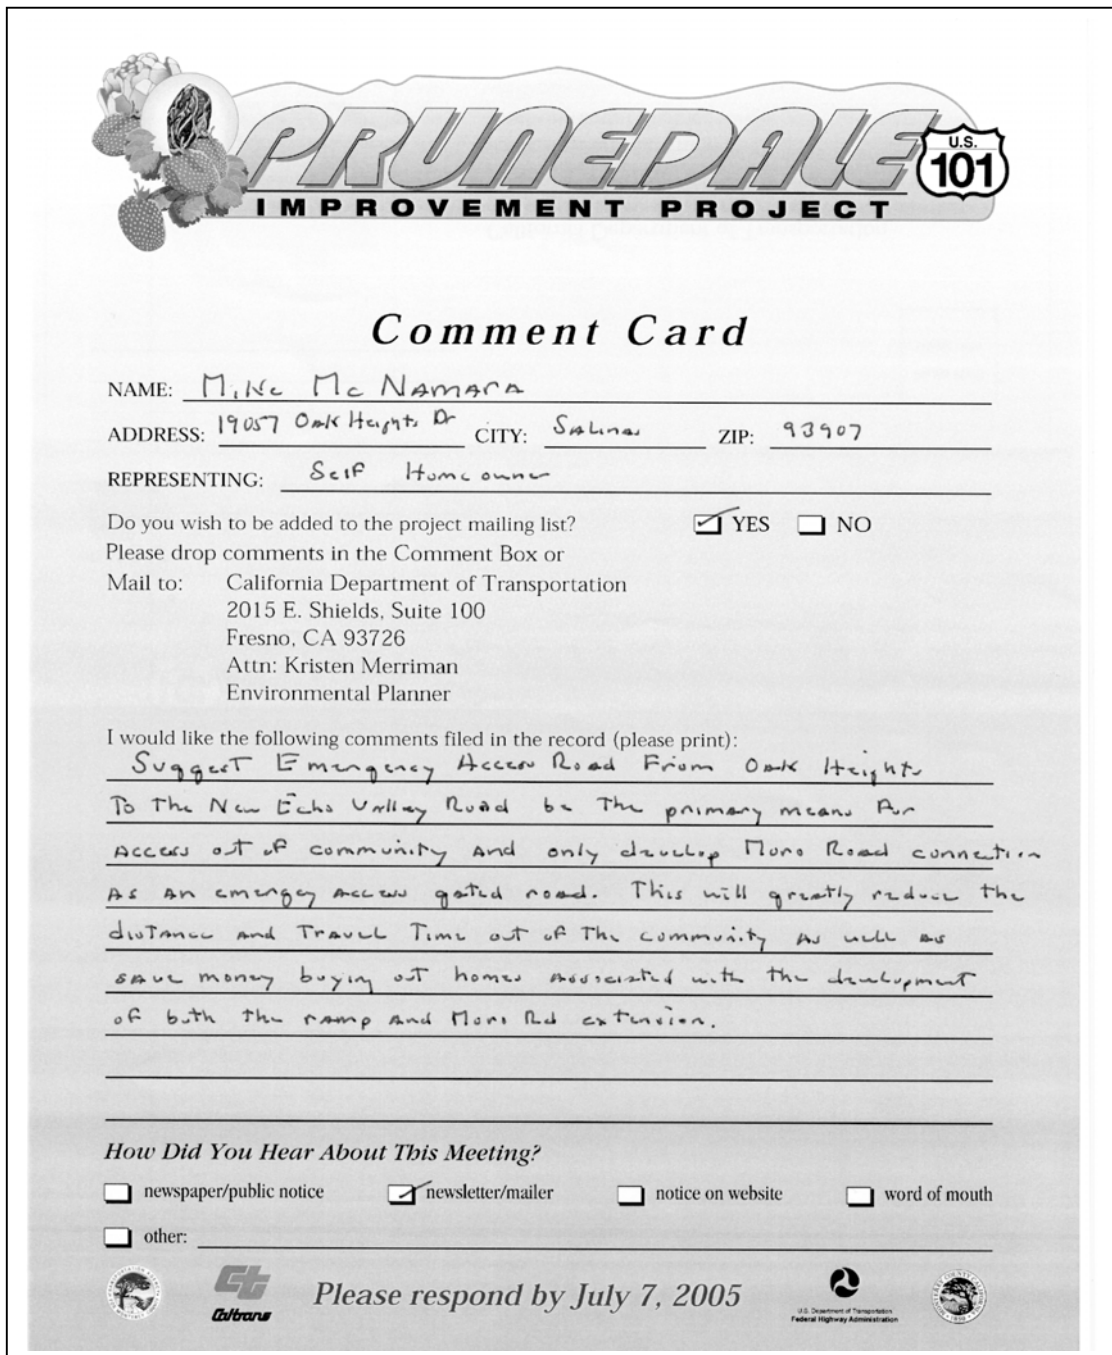 PRUNEDALE
U.S.
101
IMPROVEMENT PROJECT
Comment Card
NAME: Mike Mc Namara
ADDRESS: 19057 Oak Heights Dr CITY: Salinas ZIP: 93907
REPRESENTING: Self Homeowner
Do you wish to be added to the project mailing list? YES NO
Please drop comments in the Comment Box or
Mail to: California Department of Transportation
2015 E. Shields, Suite 100
Fresno, CA 93726
Attn: Kristen Merriman
Environmental Planner
I would like the following comments filed in the record (please print):
Suggest Emergency Access Road From Oak Heights
To the New Echo Valley Road be The primary means For
Access out of community And only develop Moro Road connection
As An emergey Access gated road. This will greatly reduce the
distance and Travel Time out of The community As well as
save money buying out homes Associated with the development
of both the ramp And Moro Rd extension.
How Did You Hear About This Meeting?
newspaper/public notice newsletter/mailer notice on website word of mouth
other:
Ct
Caltrans
Please respond by July 7, 2005
U.S. Department of Transportation
Federal Highway Administration